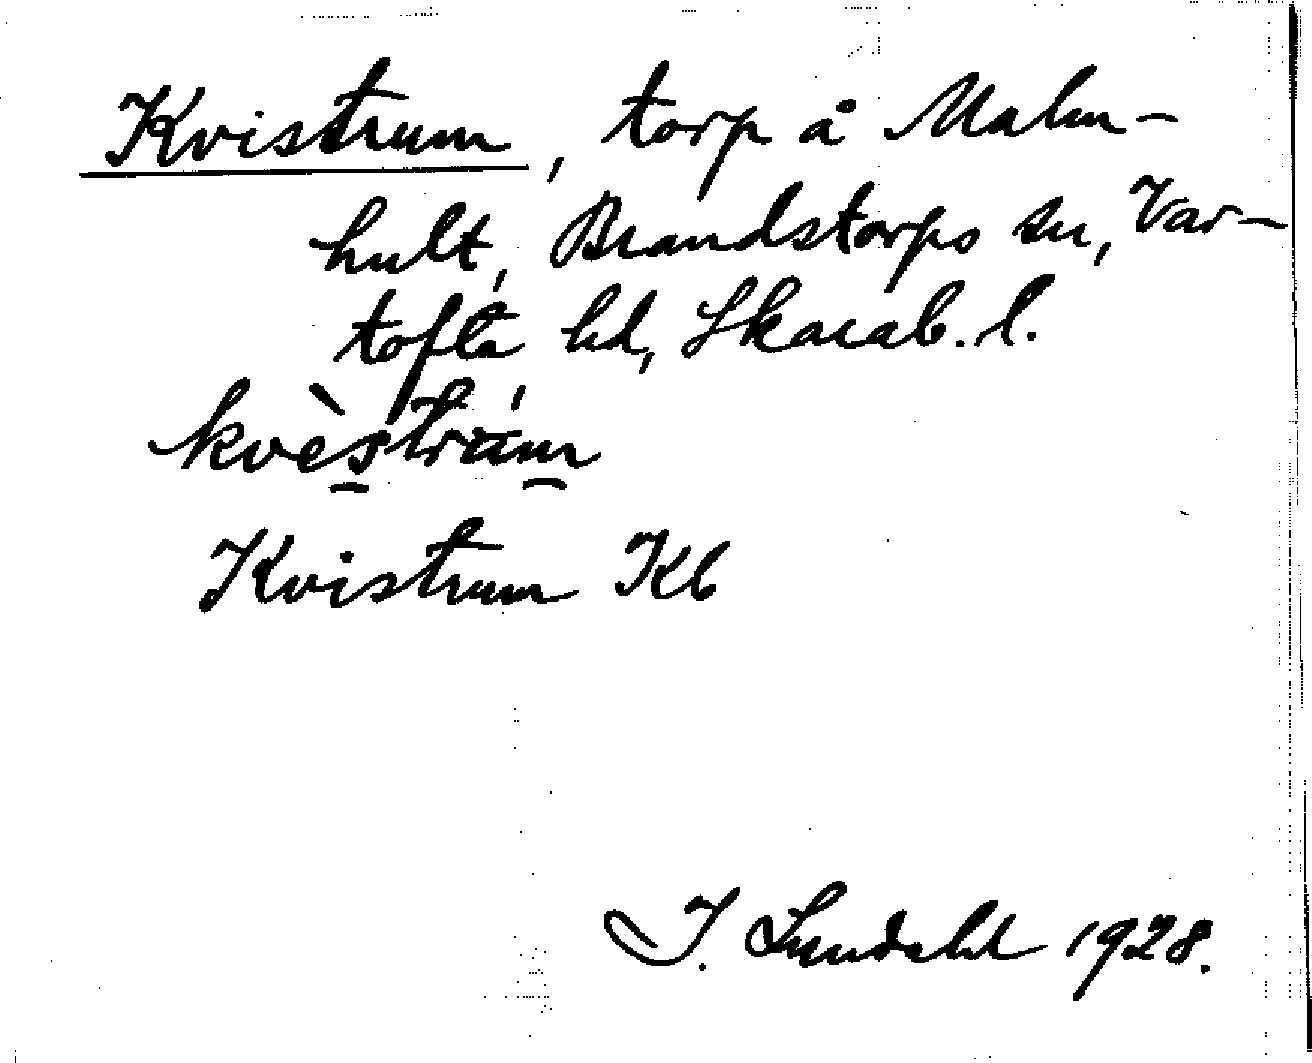 Kvistrum, torp å Malm-
hult, Brandstorps sn, Var-
tofta hd, Skarab. l.
kvèstrúm
Kvistrum Kb
I. Lundahl 1928.